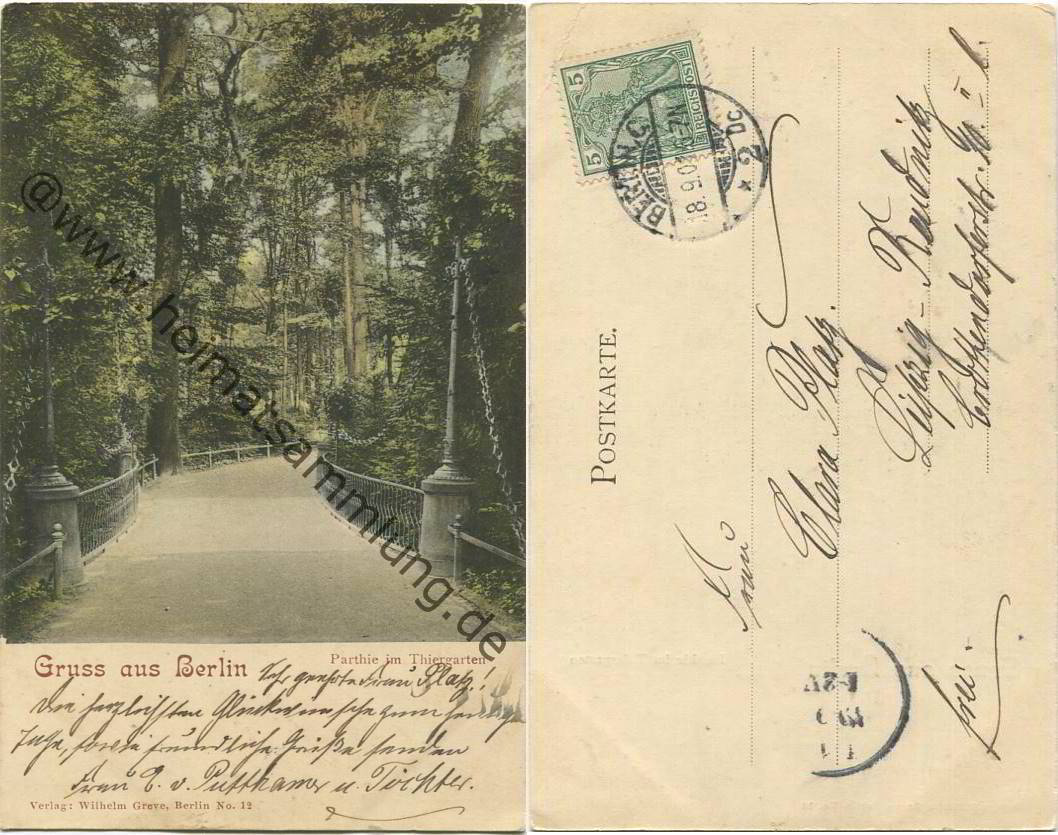 @www.heimatsammlung.de
Gruss aus Berlin
Parthie im Thiergarten
Sehr geehrte Frau Platz!
Die herzlichsten Glückwünsche zum heutige
Tage, sowie freundliche Grüße senden
Frau E. v. Puttkamer u. Tochter.
Verlag: Wilhelm Greve, Berlin No. 12
5 5
REICHSPOST
BERLIN.C.
18.9.0
* 2
POSTKARTE.
Frau
Clara Platz.
Leipzig-Reudnitz
frei.